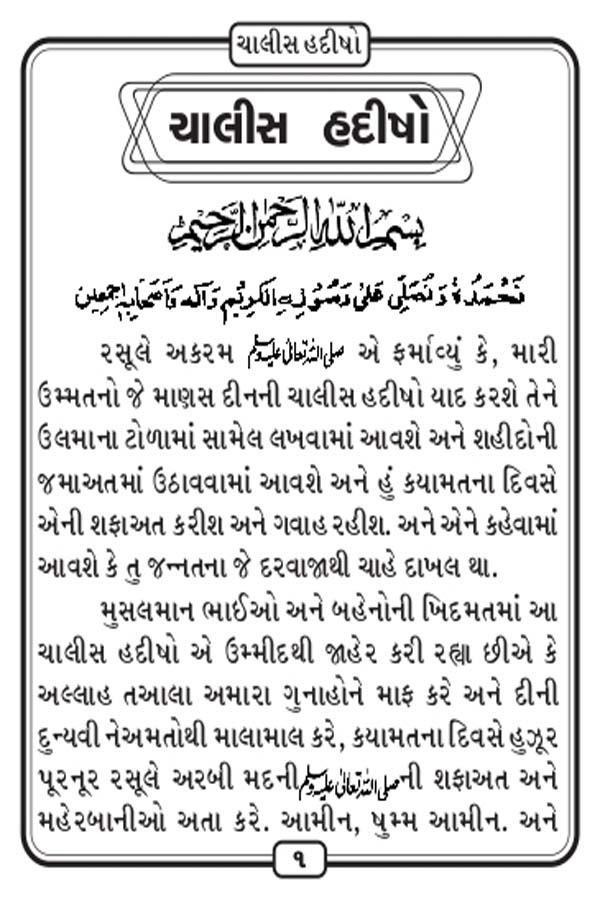 ચાલીસ હદીષો
ચાલીસ હદીષો
بسم الله الرحمن الرحيم
نَحْمَدُهٗ وَنُصَلِّیْ عَلٰی رَسُوْلِهِ الْكَرِيْمِ وَآلِهٖ وَاَصْحَابِهٖ اَجْمَعِيْن
રસૂલે અકરમ صلى الله تعالى عليه وسلم એ ફર્માવ્યું કે, મારી
ઉમ્મતનો જે માણસ દીનની ચાલીસ હદીષો યાદ કરશે તેને
ઉલમાના ટોળામાં સામેલ લખવામાં આવશે અને શહીદોની
જમાઅતમાં ઉઠાવવામાં આવશે અને હું કયામતના દિવસે
એની શફાઅત કરીશ અને ગવાહ રહીશ. અને એને કહેવામાં
આવશે કે તુ જન્નતના જે દરવાજાથી ચાહે દાખલ થા.
મુસલમાન ભાઈઓ અને બહેનોની ખિદમતમાં આ
ચાલીસ હદીષો એ ઉમ્મીદથી જાહેર કરી રહ્યા છીએ કે
અલ્લાહ તઆલા અમારા ગુનાહોને માફ કરે અને દીની
દુન્યવી નેઅમતોથી માલામાલ કરે, કયામતના દિવસે હુઝૂર
પૂરનૂર રસૂલે અરબી મદની صلى الله تعالى عليه وسلم ની શફાઅત અને
મહેરબાનીઓ અતા કરે. આમીન, ષુમ્મ આમીન. અને
૧